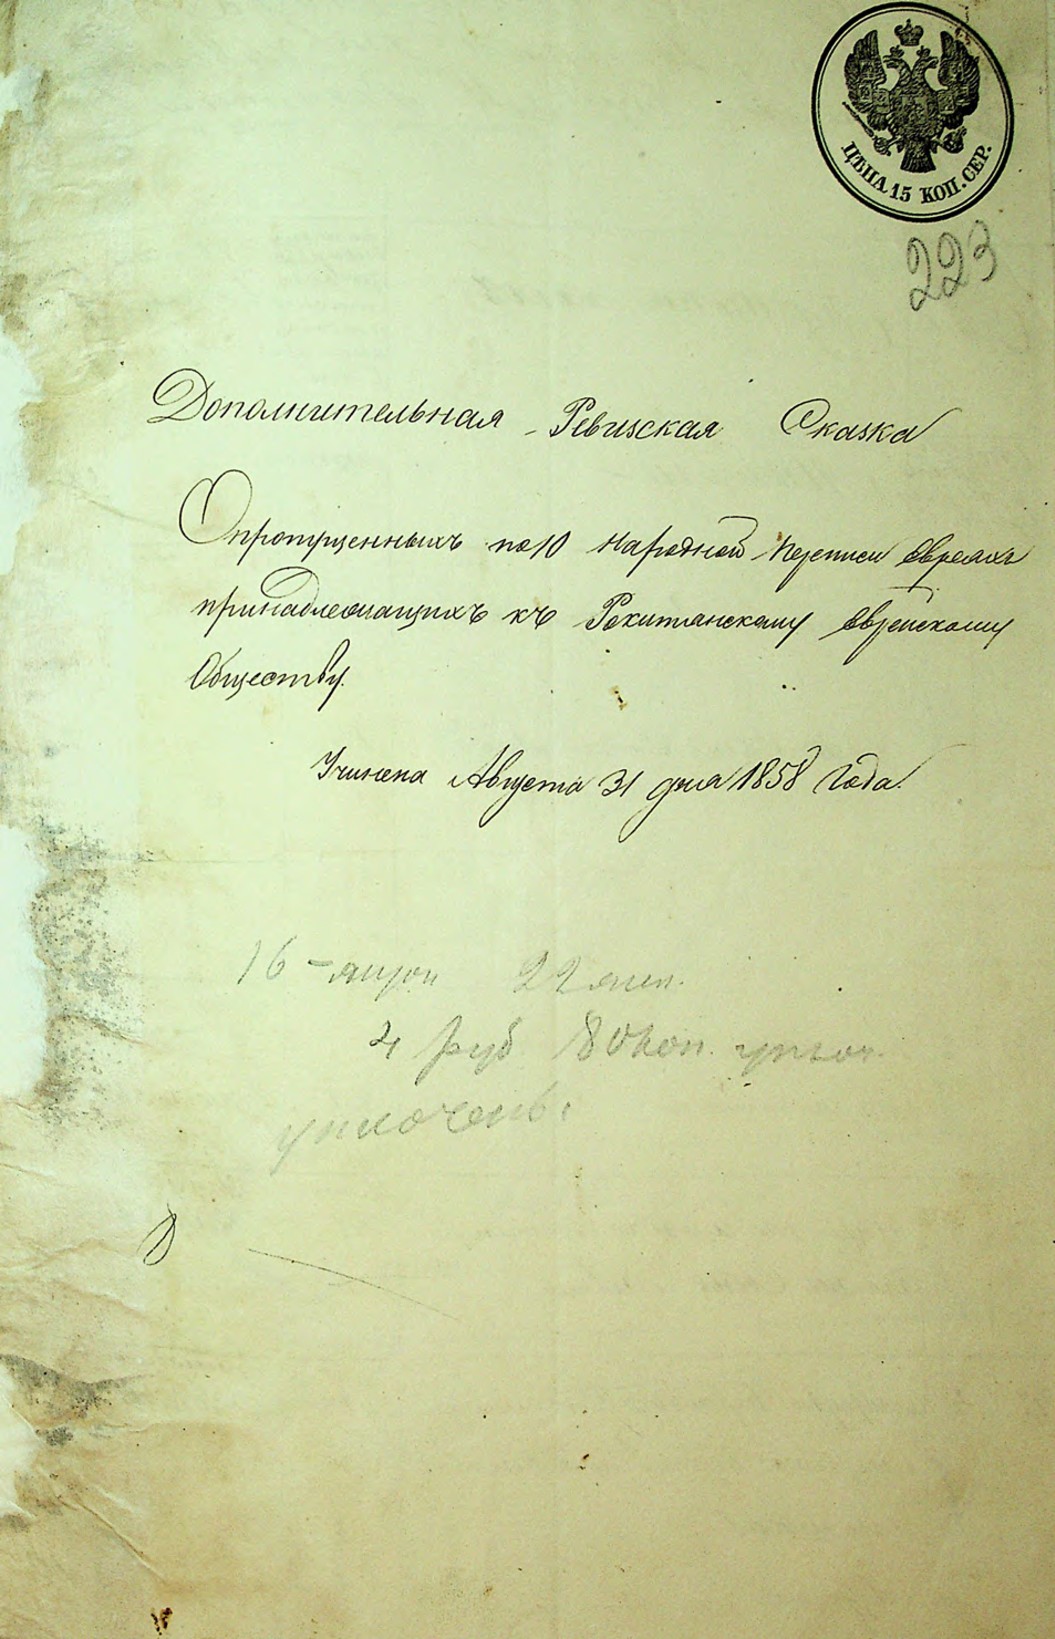 ЦѢНА 15 КОП. СЕР.
223
Дополнительная Ревизская Сказка
О пропущенныхъ по 10 народной переписи Евреяхъ
принадлежащихъ къ Рокитянскому Еврейскому
Обществу.
Учинена Августа 31 дня 1858 Года.
16 - 22
4 руб 80 коп.